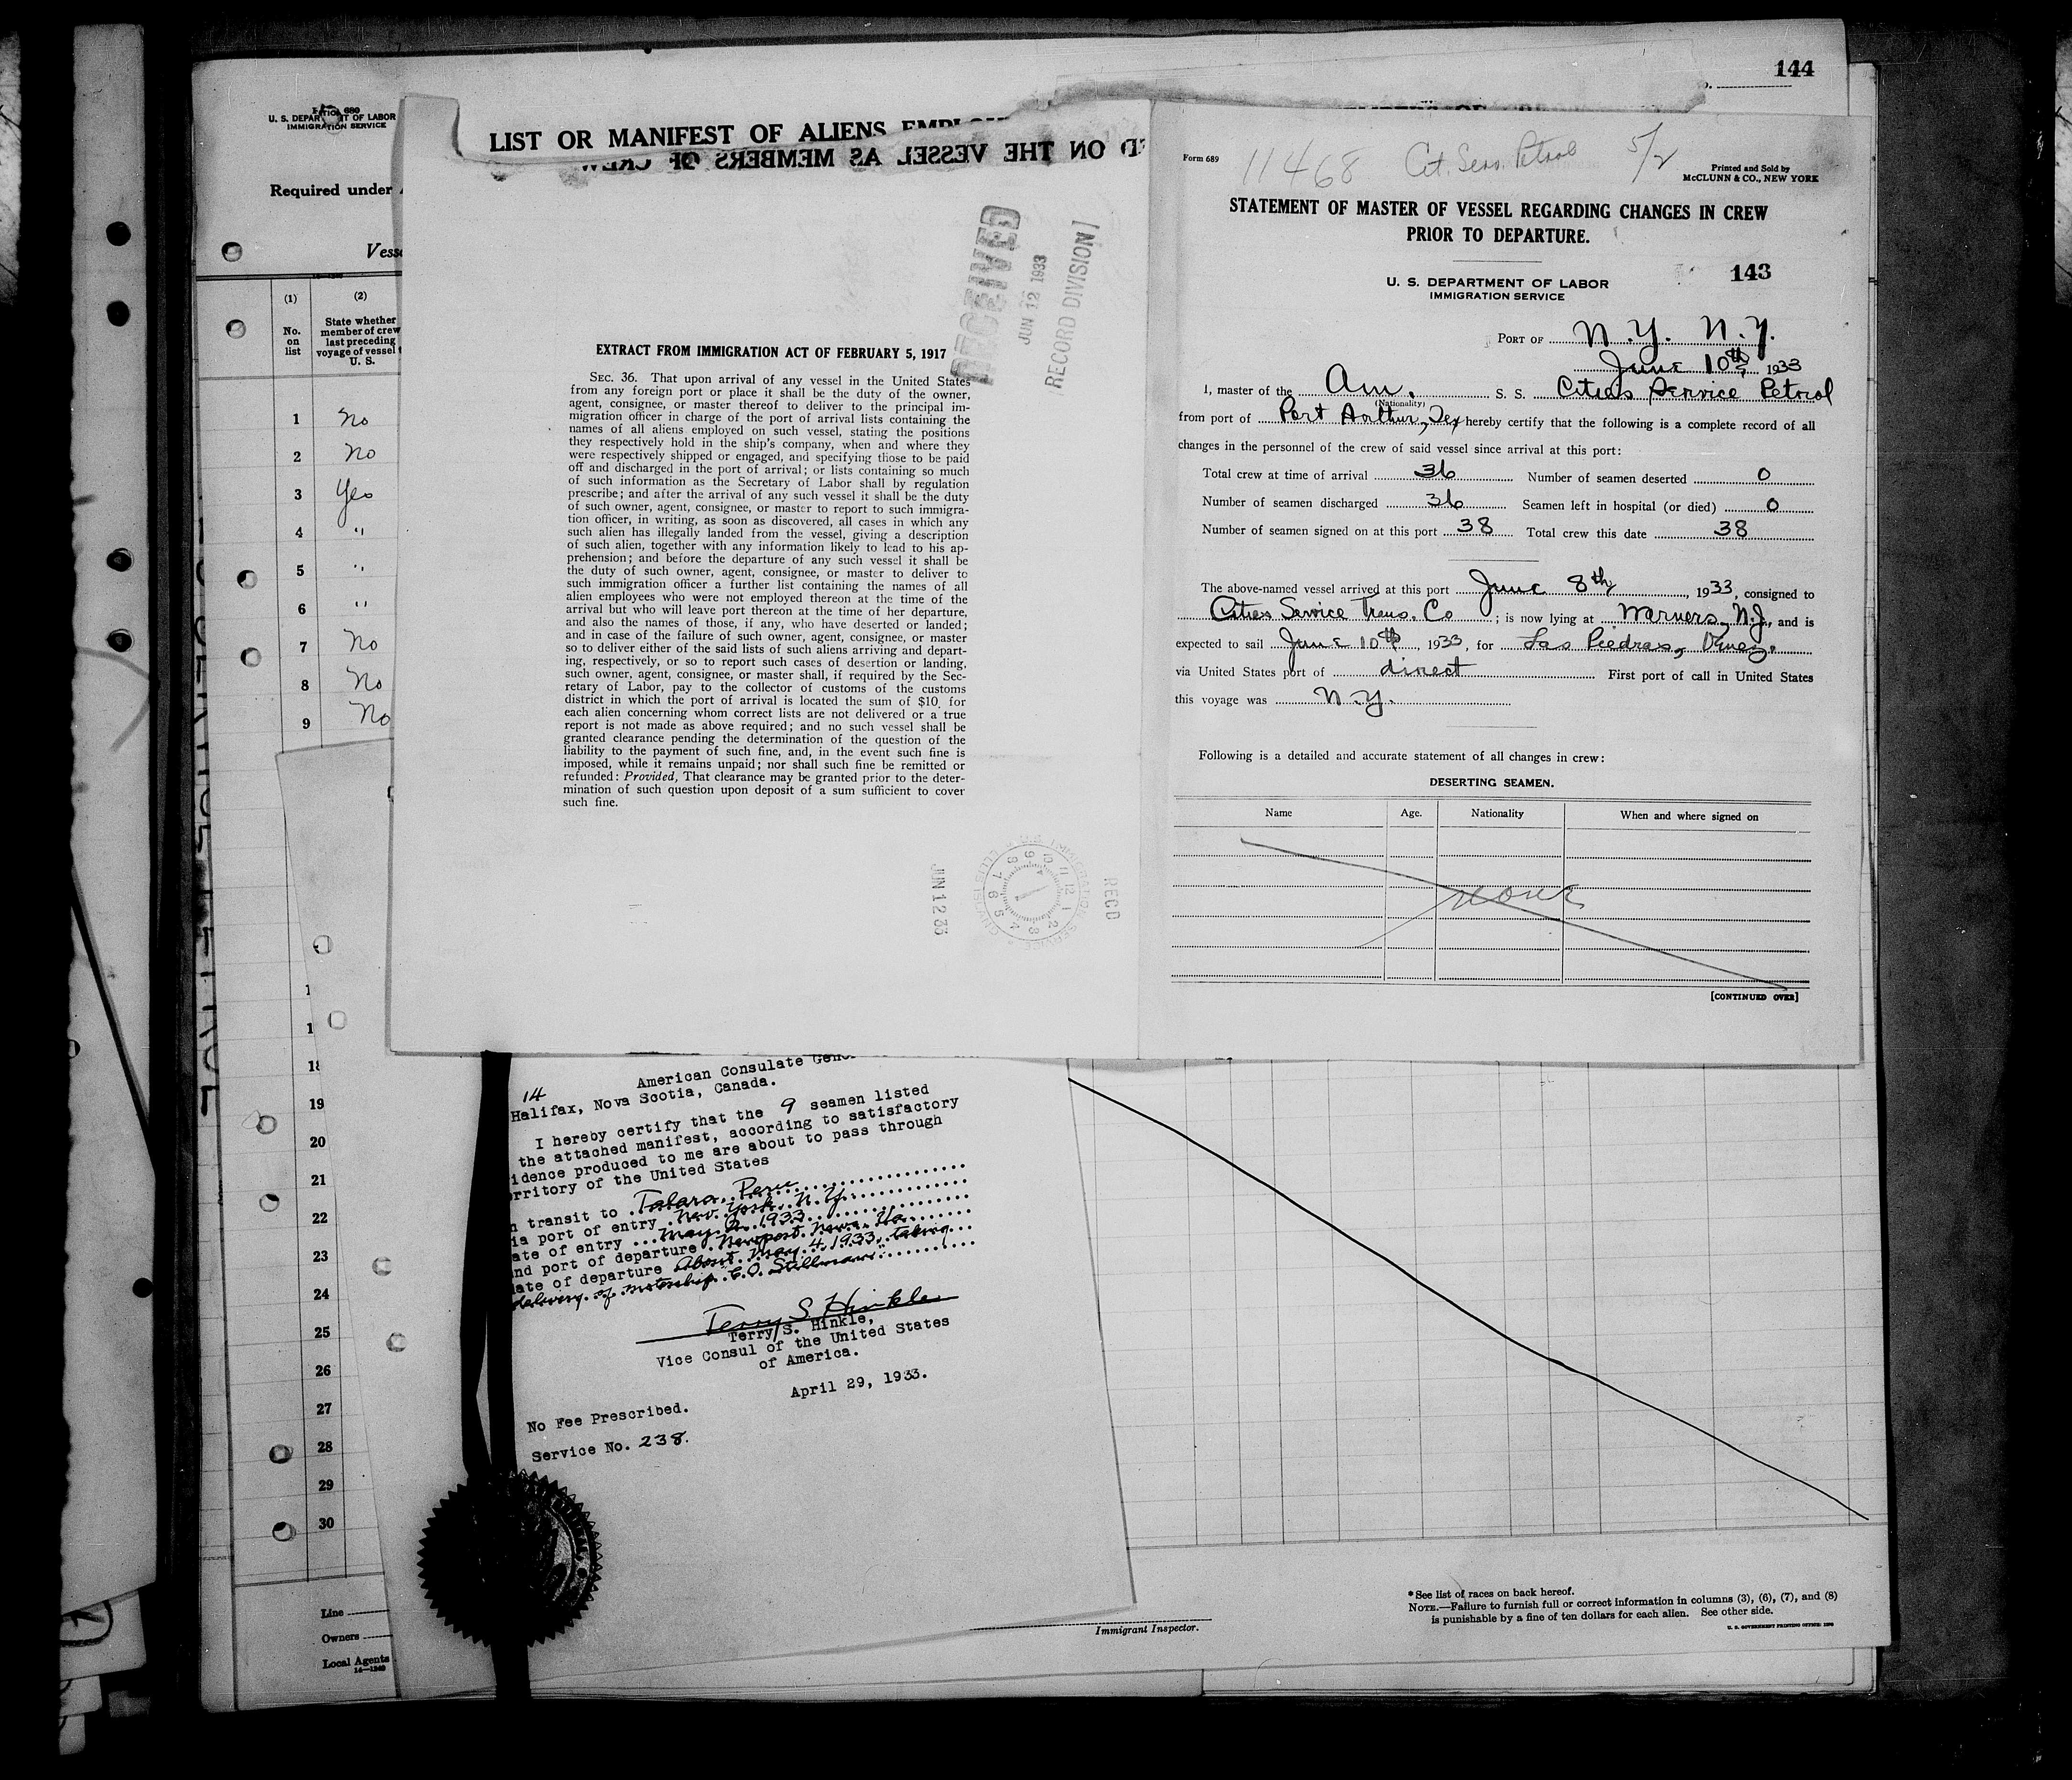 144
Form 689
U. S. DEPARTMENT OF LABOR
IMMIGRATION SERVICE
Required under
Vess
(1)
(2)
No.
on
list
State whether
member of crew
last preceding
voyage of vessel
U. S.
1 No
2 No
3 Yes
4 "
5 "
6 "
7 No
8 No
9 No
19
20
21
22
23
24
25
26
27
28
29
30
Line
Owners
Local Agents
14—1240
LIST OR MANIFEST OF ALIENS EMPLOY
ED ON THE VESSEL AS MEMBERS OF CREW
RECEIVED
JUN 12 1933
RECORD DIVISION
EXTRACT FROM IMMIGRATION ACT OF FEBRUARY 5, 1917
SEC. 36. That upon arrival of any vessel in the United States
from any foreign port or place it shall be the duty of the owner,
agent, consignee, or master thereof to deliver to the principal im-
migration officer in charge of the port of arrival lists containing the
names of all aliens employed on such vessel, stating the positions
they respectively hold in the ship's company, when and where they
were respectively shipped or engaged, and specifying those to be paid
off and discharged in the port of arrival; or lists containing so much
of such information as the Secretary of Labor shall by regulation
prescribe; and after the arrival of any such vessel it shall be the duty
of such owner, agent, consignee, or master to report to such immigra-
tion officer, in writing, as soon as discovered, all cases in which any
such alien has illegally landed from the vessel, giving a description
of such alien, together with any information likely to lead to his ap-
prehension; and before the departure of any such vessel it shall be
the duty of such owner, agent, consignee, or master to deliver to
such immigration officer a further list containing the names of all
alien employees who were not employed thereon at the time of the
arrival but who will leave port thereon at the time of her departure,
and also the names of those, if any, who have deserted or landed;
and in case of the failure of such owner, agent, consignee, or master
so to deliver either of the said lists of such aliens arriving and depart-
ing, respectively, or so to report such cases of desertion or landing,
such owner, agent, consignee, or master shall, if required by the Sec-
retary of Labor, pay to the collector of customs of the customs
district in which the port of arrival is located the sum of $10 for
each alien concerning whom correct lists are not delivered or a true
report is not made as above required; and no such vessel shall be
granted clearance pending the determination of the question of the
liability to the payment of such fine, and, in the event such fine is
imposed, while it remains unpaid; nor shall such fine be remitted or
refunded: Provided, That clearance may be granted prior to the deter-
mination of such question upon deposit of a sum sufficient to cover
such fine.
JUN 12 33
REC'D
Form 689
11468 Cit. Serv. Petrol 5/2
Printed and Sold by
McCLUNN & CO., NEW YORK
STATEMENT OF MASTER OF VESSEL REGARDING CHANGES IN CREW
PRIOR TO DEPARTURE.
U. S. DEPARTMENT OF LABOR
IMMIGRATION SERVICE
143
PORT OF N. Y. N. Y.
June 10th, 1933
I, master of the Am. S. S. Cities Service Petrol
(Nationality)
from port of Port Arthur, Tex hereby certify that the following is a complete record of all
changes in the personnel of the crew of said vessel since arrival at this port:
Total crew at time of arrival 36 Number of seamen deserted 0
Number of seamen discharged 36 Seamen left in hospital (or died) 0
Number of seamen signed on at this port 38 Total crew this date 38
The above-named vessel arrived at this port June 8th, 1933, consigned to
Cities Service Trans. Co ; is now lying at Warners, N.J., and is
expected to sail June 10th, 1933, for Las Piedras, Venez.
via United States port of direct First port of call in United States
this voyage was N.Y.
Following is a detailed and accurate statement of all changes in crew:
DESERTING SEAMEN.
Name Age. Nationality When and where signed on
none
[CONTINUED OVER]
American Consulate Gen
14
Halifax, Nova Scotia, Canada.
I hereby certify that the 9 seamen listed
the attached manifest, according to satisfactory
idence produced to me are about to pass through
rritory of the United States
n transit to Talara, Peru
ia port of entry New York, N.Y.
ate of entry May 2, 1933
nd port of departure Newport News, Va.
ate of departure About May 4, 1933, taking
delivery of motorship C.O. Stillman
Terry S Hinkle
Terry S. Hinkle,
Vice Consul of the United States
of America.
April 29, 1933.
No Fee Prescribed.
Service No. 238.
Immigrant Inspector.
* See list of races on back hereof.
NOTE.—Failure to furnish full or correct information in columns (3), (6), (7), and (8)
is punishable by a fine of ten dollars for each alien. See other side.
U. S. GOVERNMENT PRINTING OFFICE: